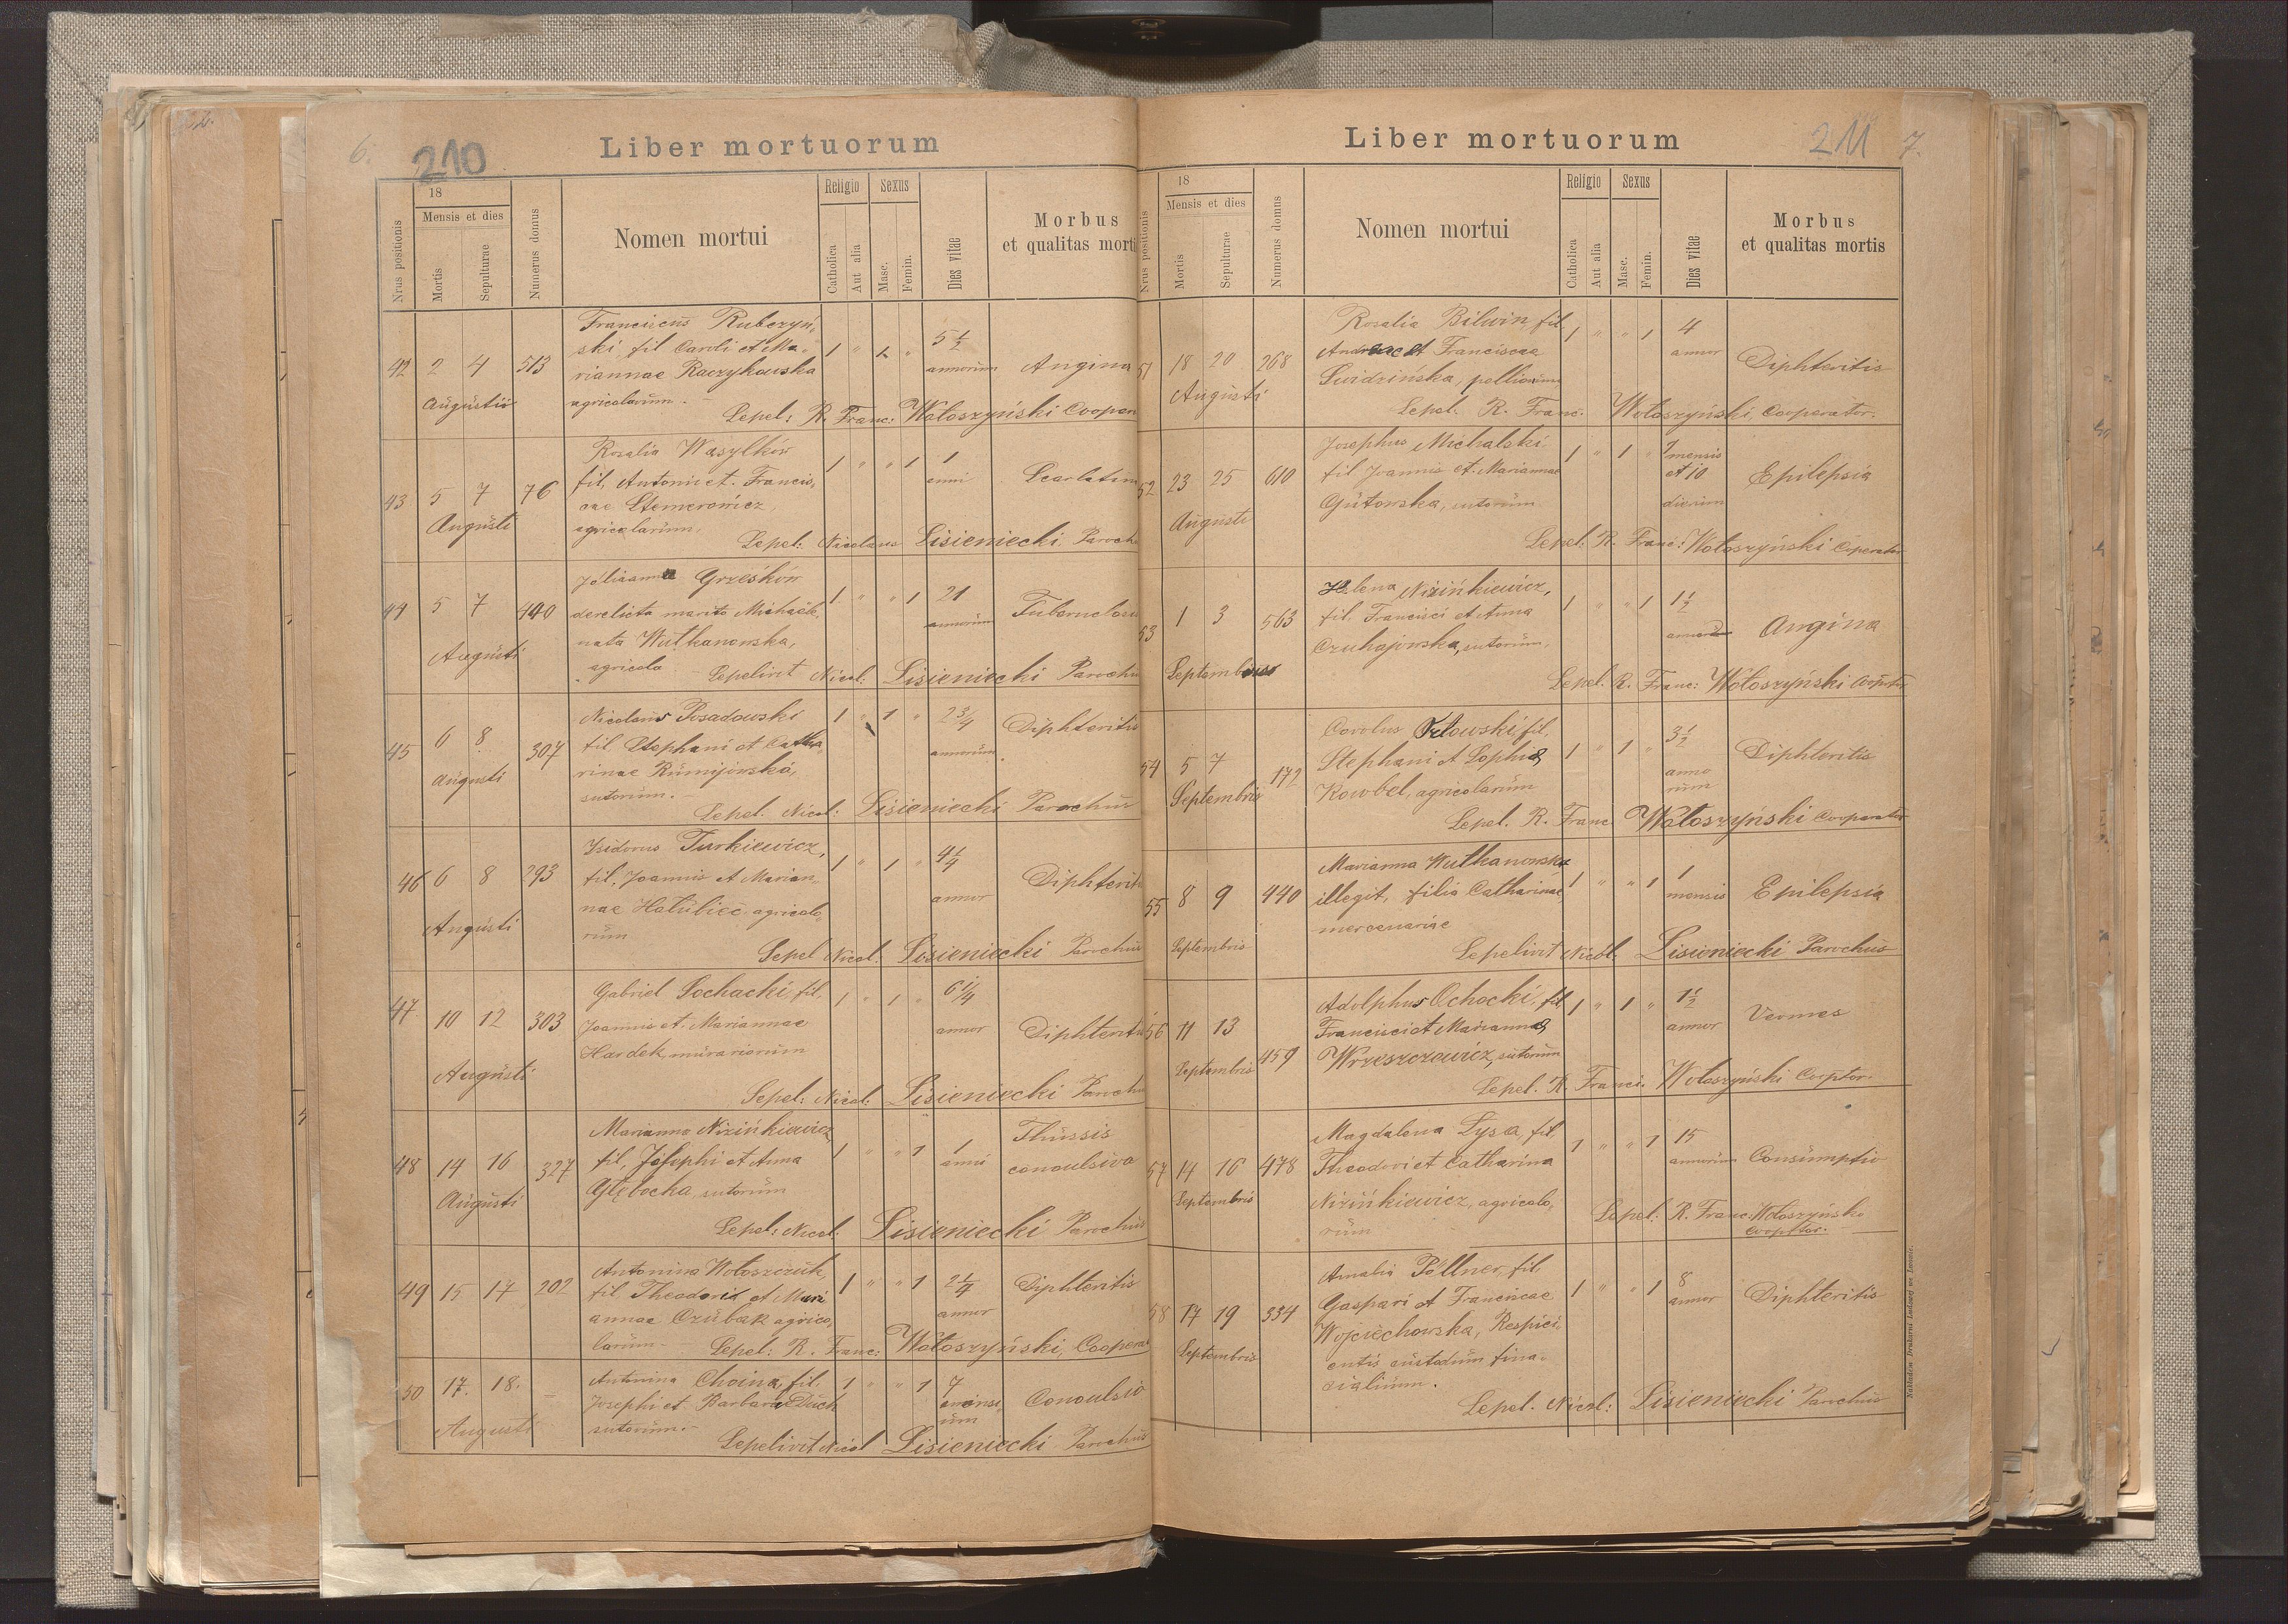 6.
210
Liber mortuorum
18
Mensis et dies
Religio
Sexus
Nrus positionis
Mortis
Sepulturae
Numerus domus
Nomen mortui
Catholica
Aut alia
Masc.
Femin.
Dies vitae
Morbus
et qualitas morti
Franciscus Rubczyń,
ski, fil Caroli et Ma,
riannae Raczykowska
agricolarum.
42 2 4 513 1 " 1 " 5 1/2 annorum Angina
Augusti
Sepel: R. Franc: Wołoszyński Cooper
Rosalia Wasylków
fil, Antonii et Francis,
cae Stemerowicz,
agricolarum,
43 5 7 76 1 " " 1 1 anni Scarlatin
Augusti
Sepel: Nicolaus Lisieniecki Paroch
Julianna Grześków
derelicta marito Michaele,
nata Wutkanowska,
agricola
44 5 7 440 1 " " 1 21 annorum Tuberculos
Augusti
Sepelivit Nicol: Lisieniecki Parochu
Nicolaus Posadowski
fil. Stephani et Catha,
rinae
sutorum.
45 6 8 307 1 " 1 " 2 3/4 annorum Diphteritis
Augusti
Sepel. Nicol: Lisieniecki Parochus
Isidorus Turkiewicz,
fil. Joannis et Marian,
nae Hołubiec, agricola,
rum
46 6 8 293 1 " 1 " 4 1/4 annor Diphterit
Augusti
Sepel Nicol: Lisieniecki Parochus
Gabriel Sochacki, fil,
Joannis et Mariannae
Hardek, murariorum
47 10 12 303 1 " 1 " 6 1/4 annor Diphterit
Augusti
Sepel: Nicol: Lisieniecki Parochu
Marianna Nizińkiewicz
fil, Josephi et Anna
Głębocka, sutorum
48 14 16 327 1 " " 1 1 anni Thussis
convulsiva
Augusti
Sepel: Nicol: Lisieniecki Parochus
Antonina Wołoszczuk,
fil Theodori et Mari
annae Czubak agrico,
larum
49 15 17 202 1 " " 1 2 1/4 annor Diphteritis
Sepel: R. Franc: Wołoszyński, Coopera
Antonina Choina, fil.
Josephi et Barbara Duch
sutorum.
50 17. 18. – 1 " " 1 7 mensi,
um Convulsio
Augusti
Sepelivit Nicol Lisieniecki Parochus
Liber mortuorum
211
7.
18
Mensis et dies
Religio
Sexus
Nrus positionis
Mortis
Sepulturae
Numerus domus
Nomen mortui
Catholica
Aut alia
Masc.
Femin.
Dies vitae
Morbus
et qualitas mortis
Rosalia Bilwin, fil.
Andreae et Franciscae
Swidzińska, pellionum
51 18 20 268 1 " " 1 4 annor Diphteritis
Augusti
Sepel. R. Franc. Wołoszyński, Cooperator.
Josephus Michalski,
fil Joannis et Mariannae
Gutowska, sutorum
52 23 25 610 1 " 1 " mensis
et 10
dierum Epilepsia
Augusti
Sepel: R. Franc: Wołoszyński Coperator
Helena Nizińkiewicz,
fil. Francisci et Anna
Czuhajowska, sutorum,
53 1 3 563 1 " " 1 1 1/2 Angina
Septembris
Sepel. R. Franc: Wołoszyński
Carolus Orłowski, fil.
Stephani et Sophia
Kowbel, agricolarum
54 5 7 172 1 " 1 " 3 1/2 anno
rum Diphteritis
Septembris
Sepel. R. Franc Wołoszyński Cooperator
Marianna Wutkanowska
illegit, filia Catharinae
mercenariae
55 8 9 440 1 " " 1 1 mensis Epilepsia
Septembris
Sepelivit Nicol. Lisieniecki Parochus
Adolphus Ochocki, fil
Francisci et Marianna
Wrzeszczowicz, sutorum
56 11 13 459 1 " 1 " 1 1/2 annor Vermes
Septembris
Sepel. R. Franci. Wołoszyński Cooptor.
Magdalena Łysa, fil,
Theodori et Catharina
Nizińkiewicz, agricola,
rum
57 14 16 478 1 " " 1 15 annorum Consumptio
Septembris
Sepel: R. Franc: Wołoszyński
Cooptor.
Amalia Pollner, fil.
Gaspari et Franciscae
Wojciechowska, Respici,
entis custodum fina,
cialium.
58 17 19 334 1 " " 1 8 annor Diphteritis
Septembris
Sepel. Nicol: Lisieniecki Parochus
Nakładem Drukarni Ludowej we Lwowie.